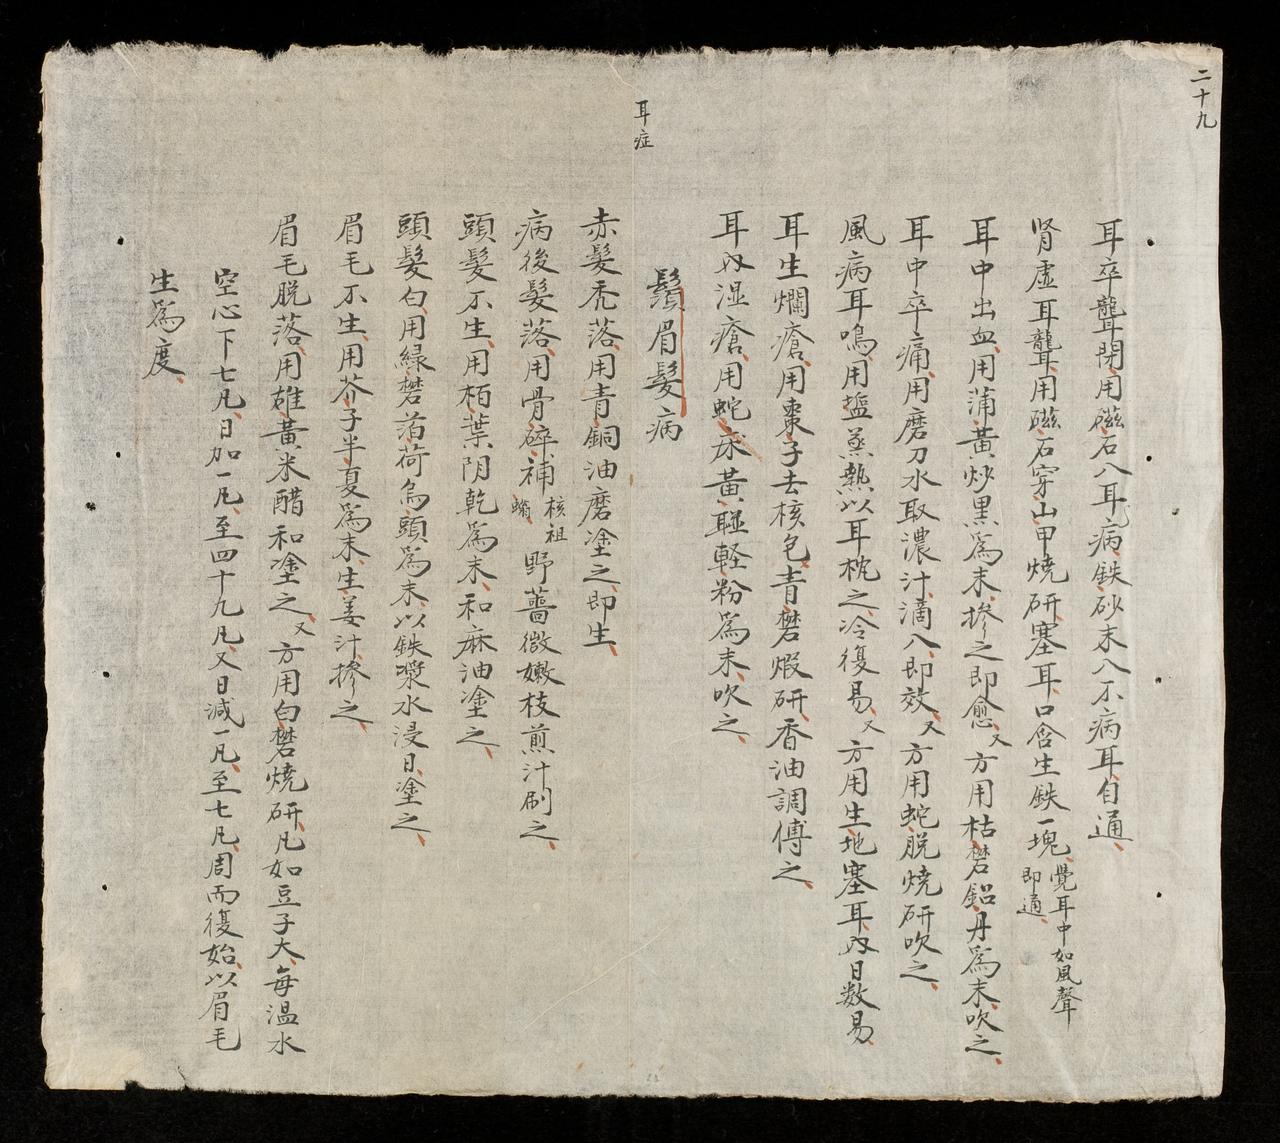 二十九
耳卒聾閉用磁石入耳病鉄砂末入不病耳自通
肾虚耳聾用磁石穿山甲燒研塞耳口含生鉄一塊覺耳中如風聲即通
耳中出血用蒲黃炒黒爲末摻之即愈又方用枯礬鉛丹爲末吹之
耳中卒痛用磨刀水取濃汁滴入即效又方用蛇脫燒研吹之
風病耳鳴用塩蒸熱以耳枕之冷復易又方用生地塞耳内日数易
耳生爛瘡用棗子去核包青礬煆研香油調傅之
耳内湿瘡用蛇床黃連軽粉爲末吹之
耳症
鬚眉髮病
赤髮禿落用青銅油磨塗之即生
病後髮落用骨碎補核祖蝻野薔微嫩枝煎汁刷之
頭髮不生用栢葉阴乾爲末和麻油塗之
頭髮白用緑礬萡荷烏頭爲末以鉄漿水浸日塗之
眉毛不生用芥子半夏爲末生姜汁摻之
眉毛脱落用雄黃米醋和塗之又方用白礬燒研凡如豆子大每温水
空心下七凡日加一凡至四十九凡又日減一凡至七凡周而復始以眉毛
生爲度